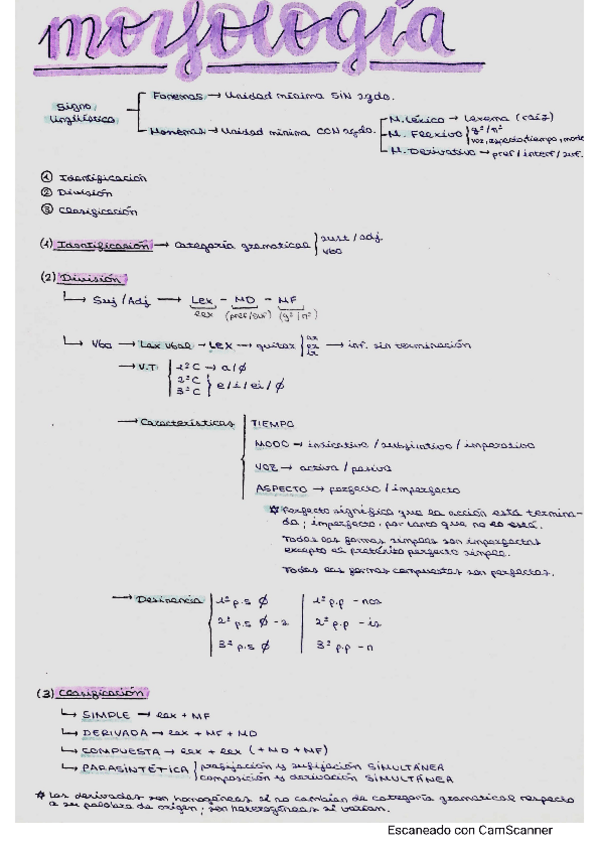 morfología
Signo lingüístico
Fonemas → Unidad mínima SIN sgdo.
Monemas → Unidad mínima CON sgdo.
M. Léxico → Lexema (raíz)
M. Flexivo gº/nº
voz, aspecto, tiempo, modo
M. Derivativo → pref/interf/suf.
① Identificación
② División
③ Clasificación
(1) Identificación → categoría gramatical sust/adj
vbo
(2) División
Suj/Adj → Lex - MD - MF
lex (pref/suf) (gº/nº)
Vbo → Lex vbal → LEX → quitar ar er ir → inf. sin terminación
→ V.T. 1ª C → a/∅
2ª C
3ª C e/i/ei/∅
→ Características TIEMPO
MODO → indicativo/subjuntivo/imperativo
VOZ → activa/pasiva
ASPECTO → perfecto/imperfecto
* Perfecto significa que la acción está termina-
da; imperfecto, por tanto que no lo está.
Todas las formas simples son imperfectas
excepto el pretérito perfecto simple.
Todas las formas compuestas son perfectas.
→ Desinencia 1ª p.s ∅ 1ª p.p - mos
2ª p.s ∅ - s 2ª p.p - is
3ª p.s ∅ 3ª p.p - n
(3) Clasificación
SIMPLE → lex + MF
DERIVADA → lex + MF + MD
COMPUESTA → lex + lex (+ MD + MF)
PARASINTÉTICA prefijación y sufijación SIMULTÁNEA
composición y derivación SIMULTÁNEA
* Las derivadas son homogéneas si no cambian de categoría gramatical respecto
a su palabra de origen; son heterogéneas si varían.
Escaneado con CamScanner